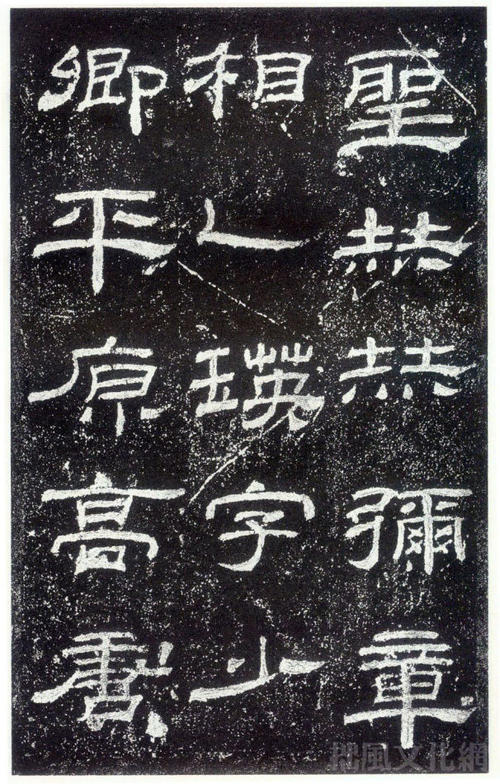 聖赫赫彌章
相乙瑛字少
卿平原高唐
風文化網